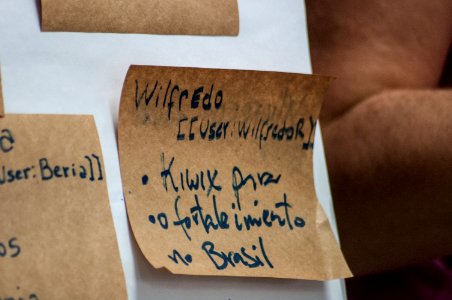 Wilfredo
[[User:WilfredoR]]
• Kiwix para
• o fortaleimiento
no Brasil
a
User:Beria]]
os